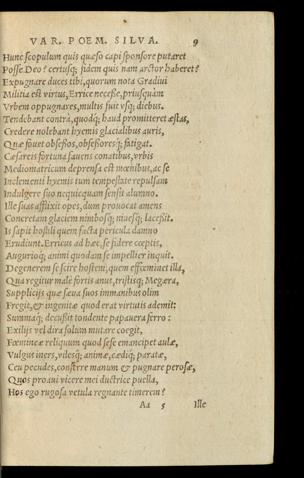 VAR. POEM. SILVA. 9
Hunc scopulum quis quæso capi sponsore putaret
Posse Deo? certusq; fidem quis nam arctor haberet?
Expugnare duces tibi, quorum nota Gradiui
Militia est virtus, Errice neceße, priusquàm
Vrbem oppugnares, multis fuit vsq; diebus.
Tendebant contrà, quodq; haud promitteret æstas,
Credere nolebant hyemis glacialibus auris,
Quæ fouet obseßos, obseßoresq; fatigat.
Cæsareis fortuna fauens conatibus, vrbis
Mediomatricum deprensa est mœnibus, ac se
Inclementi hyemis tum tempestate repulsam
Indulgere suo nequicquam sensit alumno.
Ille suas afflixit opes, dum prouocat amens
Concretam glaciem nimbosq; niuesq; lacesßit.
Is sapit hostili quem facta pericula damno
Erudiunt. Erricus ad hæc, se fidere cœptis,
Augurioq; animi quodam se impellier inquit.
Degenerem se scire hostem, quem effœminet illa,
Qua regitur malè fortis anus, tristisq; Megæra,
Supplicijs quæ sæua suos immanibus olim
Fregit, & ingenitæ quod erat virtutis ademit:
Summaq; decußit tondente papauera ferro:
Exilijs vel dira solum mutare coegit,
Fœmineæ reliquum quod sese emancipet aulæ,
Vulgus iners, vilesq; animæ, cædiq; paratæ,
Ceu pecudes, conferre manum & pugnare perosæ,
Quos proaui vicere mei ductrice puella,
Hos ego rugosa vetula regnante timerem?
Aa 5 Ille